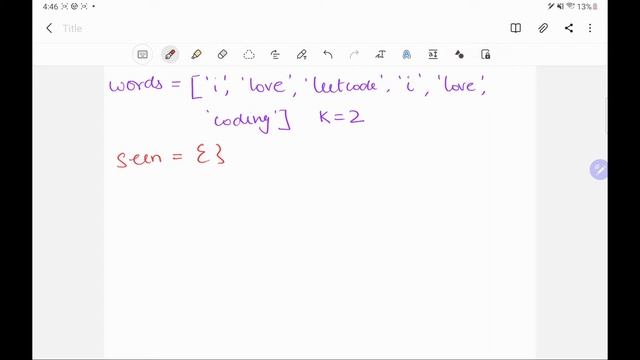 4:46
13%
Title
words = ['i', 'love', 'leetcode', 'i', 'love',
'coding'] K=2
seen = {}